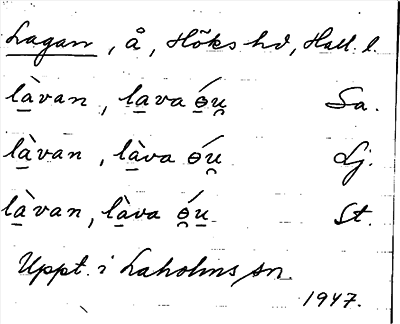 Lagan, å, Höks hd, Hall. l.
là̱van, la̱va ɵ̱́u̯ Sa.
là̱van, là̱va ɵ́u̯ Lj.
là̱van, là̱va ɵ̱́u̱ St.
Uppt. i Laholms sn.
1947.